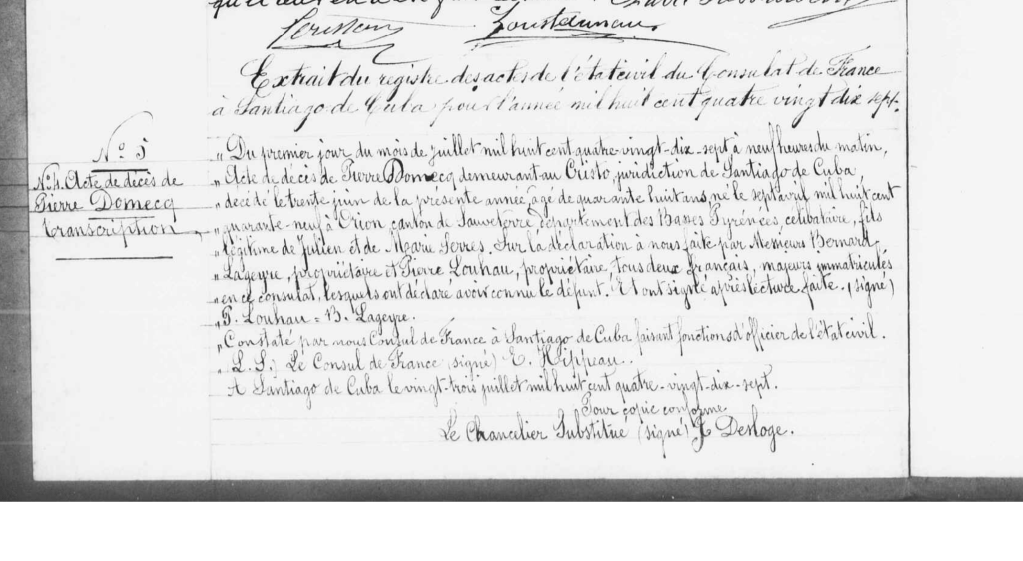 Extrait du registre des actes de l'état civil du Consulat de France
à Santiago de Cuba pour l'année mil huit cent quatre vingt dix sept.
N° 5
N° 4. Acte de décès de
Pierre Domecq
transcription
„ Du premier jour du mois de juillet mil huit cent quatre-vingt-dix-sept à neuf heures du matin,
„ Acte de décès de Pierre Domecq demeurant au Cristo, juridiction de Santiago de Cuba,
„ décédé le trente juin de la présente année, âgé de quarante huit ans, né le sept avril mil huit cent
„ quarante-neuf à Orion canton de Sauveterre, département des Basses Pyrénées, célibataire, fils
„ légitime de Julien et de Marie Serres. Sur la déclaration à nous faite par Messieurs Bernard
„ Lageyre, propriétaire et Pierre Louhau, propriétaire, tous deux français, majeurs immatriculés
„ en ce consulat, lesquels ont déclaré avoir connu le défunt. Et ont signé après lecture faite. (signé)
„ P. Louhau = B. Lageyre.
„ Constaté par nous Consul de France à Santiago de Cuba faisant fonctions d'officier de l'état civil.
„ L. S.) Le Consul de France (signé) E. Hippeau.
A Santiago de Cuba le vingt-trois juillet mil huit cent quatre-vingt-dix-sept.
Pour copie conforme
Le Chancelier Substitué (signé) J. Desloge.